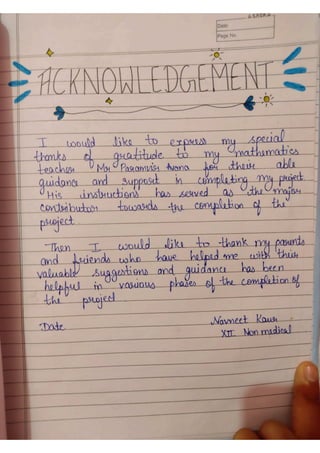 Date
Page No.
ACKNOWLEDGEMENT
I would like to express my special
thanks of gratitude to my mathematics
teacher Mr Paramvir Arora for their able
guidance and support in completing my project
His instructions has served as the major
contributor towards the completion of the
project
Then I would like to thank my parents
and friends who have helped me with their
valuable suggestions and guidance has been
helpful in various phases of the completion of
the project
Date
Navneet Kaur
XII Non medical